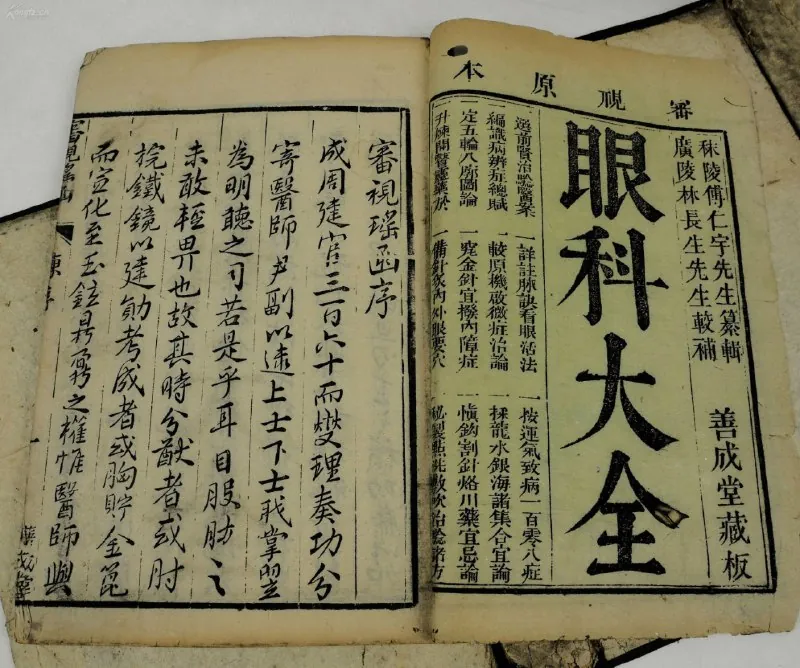 審視原本
秣陵傅仁宇先生纂輯
廣陵林長生先生較補
善成堂藏板
眼科大全
選前賢治驗醫案
一詳註脉訣看眼活法
一按運氣致病一百零八症
一編識病辨症總賦
一較原機啟微症治論
一採龍水銀海諸集合宜論
一定五輪八廓圖論
一究金針宜撥內障症
一慎鈎割針烙用藥宜忌論
一升煉開瞽靈藥
一備針灸內外眼要穴
一秘製點洗敷吹治驗諸方
審視瑤函序
成周建官三百六十而燮理奏功分
寄醫師尹副以逮上士下士職掌
為明聽之司若是乎耳目股肱之
未敢輕畀也故其時分猷者或肘
挽鐵鏡以建勛考成者或胸貯金篦
而宣化至玉鉉鼎鼐之權惟醫師與
審視瑤函